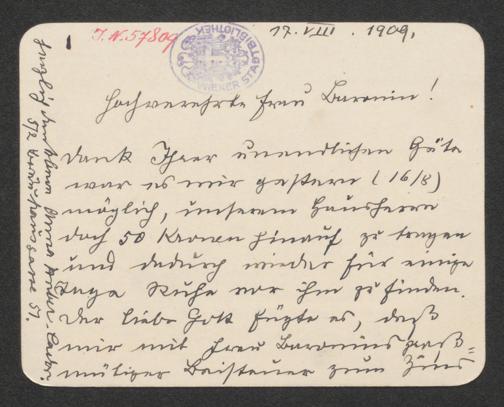 1
J.N. 57809
WIENER STADTBIBLIOTHEK
17. VIII. 1909.
Hochverehrte Frau Baronin!
Dank Ihrer unendlichen Güte
war es mir gestern (16/8)
möglich, unserem Hausherrn
doch 50 Kronen hinauf zu tragen
und dadurch wieder für einige
Tage Ruhe vor ihm zu finden.
Der liebe Gott fügte es, daß
mir mit Frau Baronins groß-
mütiger Beisteuer zum Zins